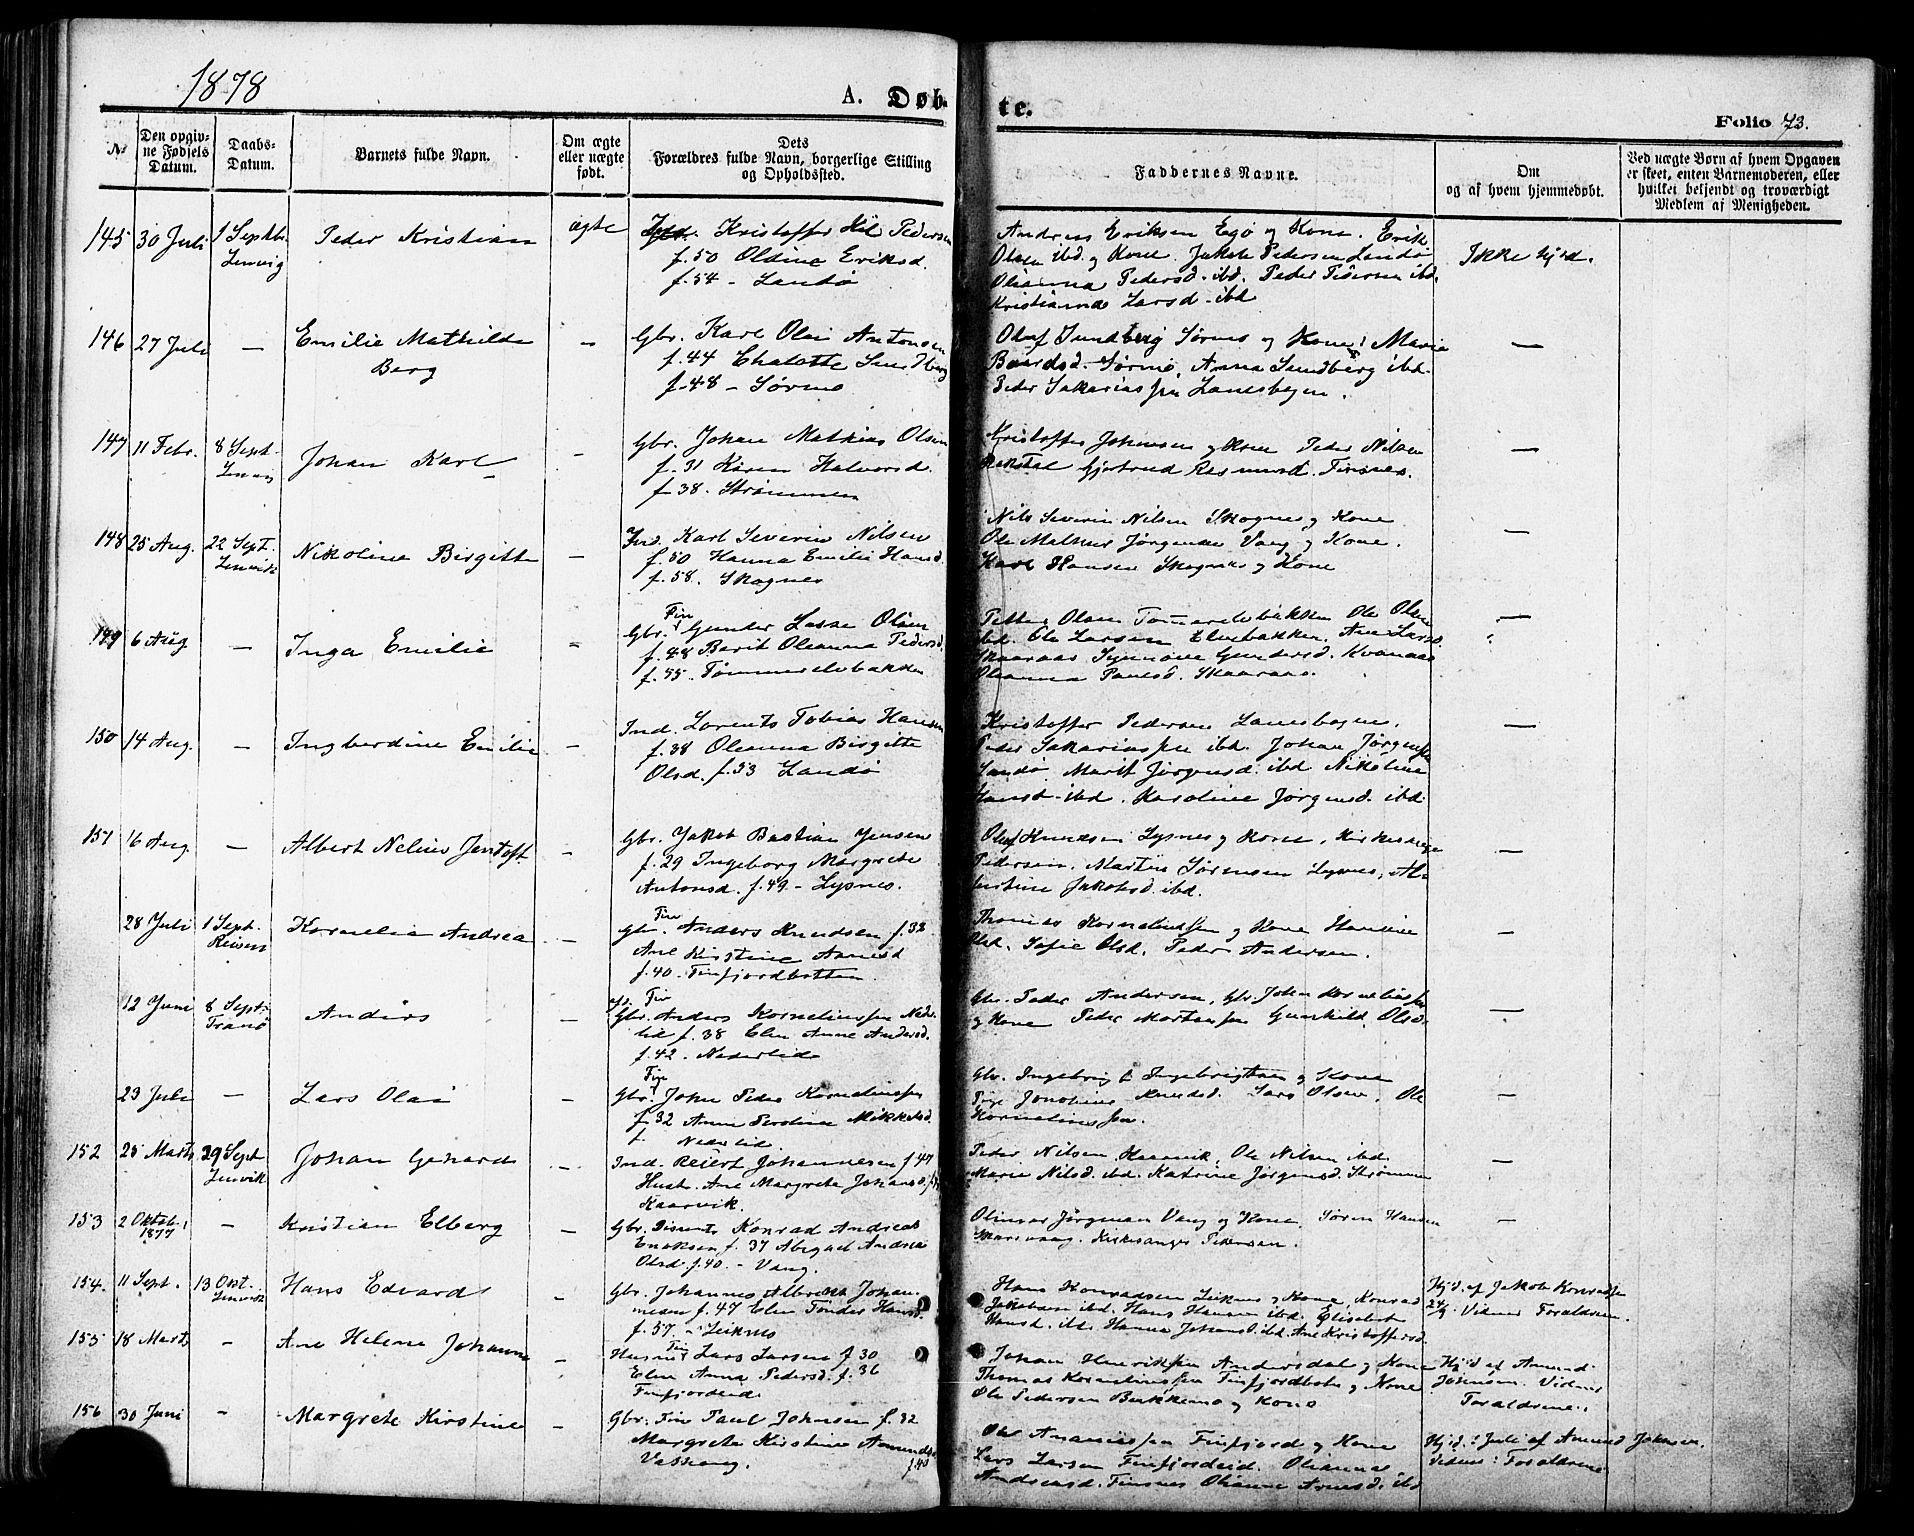 1878
A. Døb-
te.
Folio 73.
№
Den opgiv-
ne Fødsels
Datum.
Daabs-
Datum.
Barnets fulde Navn.
Om ægte
eller uægte
født.
Dets
Forældres fulde Navn, borgerlige Stilling
og Opholdssted.
Faddernes Navne.
Om
og af hvem hjemmedøbt.
Ved uægte Børn af hvem Opgaven
er skeet, enten Barnemoderen, eller
hvilket bekjendt og troværdigt
Medlem af Menigheden.
145 30 Juli 1 Septbr. Peder Kristian ægte Kristoffer Peders
Lenvig f. 50 Oldine Eriksd.
f. 54 - Landø
Andreas Eriksen Egø og Kone. Erik
Olsen ibd. og Kone. Jakob Pedersen Landø
Olianna Pedersd. ibd. Peder Pedersen ibd.
Kristianna Larsd. ibd
Ikke hjd.
146 27 Juli — Emilie Mathilde - Gbr. Karl Olai Antonsen
Berg f. 44 Chalotte Sundberg
f. 48 - Sørmo
Oluf Sundberg Sørnes og Kone. Maria
Baardsd. Sørmo. Anna Sundberg ibd.
Peder Sakariassen Lanesbogen.
—
147 11 Febr. 8 Sept. Johan Karl - Gbr. Johan Mathias Olsen
Lenvig f. 31 Karen Halvorsd.
f. 38. Strømmen
Kristoffer Johnsen og Kone Peder Nilsen
Gjertrud Rasmusd. Finsnes.
—
148 25 Aug. 22 Sept. Nikoline Birgitte - Ind. Karl Severin Nilsen
Lenvik f. 50 Hanna Emilie Hansd.
f. 58. Skognes
Nils Severin Nilsen Skognes og Kone
Ole Mathias Jørgensen Vang og Kone.
Karl Hansen Skognes og Kone
—
149 6 Aug — Inga Emilie - Gbr. Fin Gunder Lasse Olsen
f. 48 Barit Oleanna Pedersd.
f. 55. Tømmerelvbakken
Petter Olsen Tømmerelvbakken Ole Olsen
ibd. Ole Larsen Elvebakken. Ane Larsd.
Skaaraas Synnøve Gundersd. Kvanaas
Oleanna Paulsd. Skaaraas.
—
150 14 Aug. - Ingberdine Emilie - Ind. Lorents Tobias Hansen
f. 38 Oleanna Birgitte
Olsd. f. 53 Landø
Kristoffer Pedersen Lanesbogen.
Peder Sakariassen ibd. Johan Jørgens
Landø. Marit Jørgensd. ibd Nikoline
Hansd. ibd. Karoline Jørgensd. ibd.
—
151 16 Aug. — Albert Jentoft - Gbr. Jakob Bastian Jensen
f. 29 Ingeborg Margrete
Antonsd. f. 49 - Lysnes.
Oluf Knudsen Lysnes og Kone, Kirkesanger
Pedersen. Martin Sørensen Lysnes, Al-
bertine Jakobsd. ibd.
—
28 Juli 1 Sept. Kornelia Andrea - Fin
Reisen Gbr. Anders Knudsen f. 38
Ane Kirstine
f. 40. Finfjordbotten
Thomas Korneliussen og Kone
Olsd. Sofie Olsd. Peder Andersen.
—
12 Juni 8 Sept. Anders - Fin
Tranø Gbr. Anders Korneliussen Neder-
lid f. 38 Elen Anne Andersd.
f. 42 - Nederlid
Gbr. Peder Andersen, Gbr Johan Korneliussen
og Kone Peder Mortensen Gunhild Olsd.
—
23 Juli — Lars Olai - Fin
Gbr. John Peder Korneliussen
f. 32 Anne Mikkelsd.
f. Nederlid
Gbr. Ingebrigt Ingebrigtsen og Kone
Pige Knudsd. Lars Olsen. Ole
Korneliussen.
—
152 25 Marts 29 Sept Johan Gerhard - Ind. Reiert Johannesen f. 47
Lenvik Hust. Ane Margrete Johansd.
Kaarvik.
Peder Nilsen Kaarvik. Ole Nilsen ibd.
Marie Nilsd. ibd. Katrine Jørgensd. Strømmen
—
153 2 Oktob. - Kristian Elberg - Gbr. Konrad Andreas
1877 Eriksen f. 37 Abigael Andrea
Olsd. f. 40. - Vang.
Jørgensen Vang og Kone, Søren Hansen
Kirkesanger Pedersen.
—
154. 11 Sept. 13 Okt. Hans Edvard - Gbr. Johannes Albrekt Johan-
Lenvik nesen f. 47 Elen Hansd.
f. 57. - Leiknes
Hans Konradsen Leiknes og Kone, Konrad
Jakobsen ibd. Hans Hansen ibd. Elisabet
Hansd. ibd. Hanna Johansd. ibd. Ane Kristoffersd.
Hjd. af Jakob Konradsen
Vidner Forældrene.
155 18 Marts - Ane Helene Johanne - Fin Lars Larsen f. 30
Elen Anna Pedersd. f. 36
Finfjordeid
Johan Henriksen Andersdal og Kone
Thomas Korneliussen Finfjordbotn og Kone
Ole Pedersen Bukkemo og Kone
Hjd. af Amund
Johnsen. Vidner
Forældrene.
156 30 Juni - Margrete Kirstine - Gbr. Fin Paul Johnsen f. 32
Margrete Kirstine Amunds
f. 40
Ole Finfjord og Kone
Lars Larsen Finfjordeid. Oleanna
Andreasd. Finsnes ibd
Hjd. i Juli af Amund Johnsen.
Vidner: Forældrene